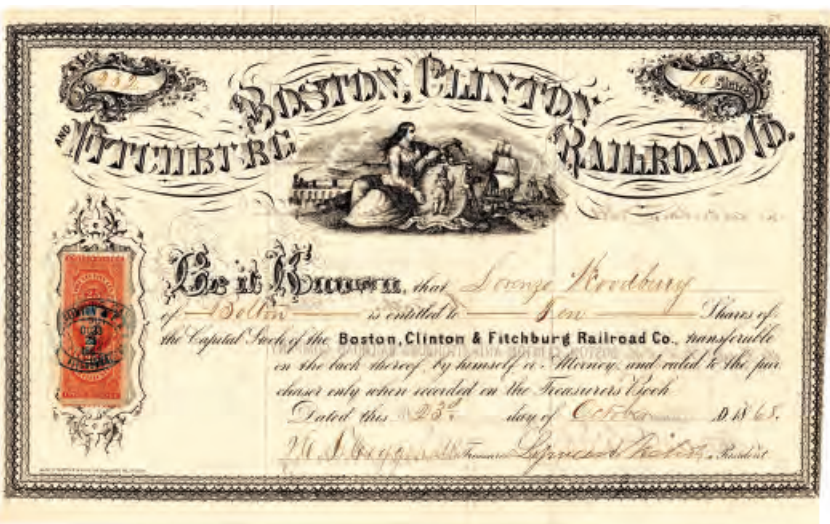 No. 232
10 Shares
BOSTON, CLINTON
AND FITCHBURG RAILROAD CO.
Be it Known, that Lorenzo Woodbury
of Bolton is entitled to Ten Shares of
the Capital Stock of the Boston, Clinton & Fitchburg Railroad Co., transferable
on the back thereof, by himself or Attorney, and valid to the pur
chaser only when recorded on the Treasurers Book
Dated this 23d day of October A.D. 1868.
Treasurer President